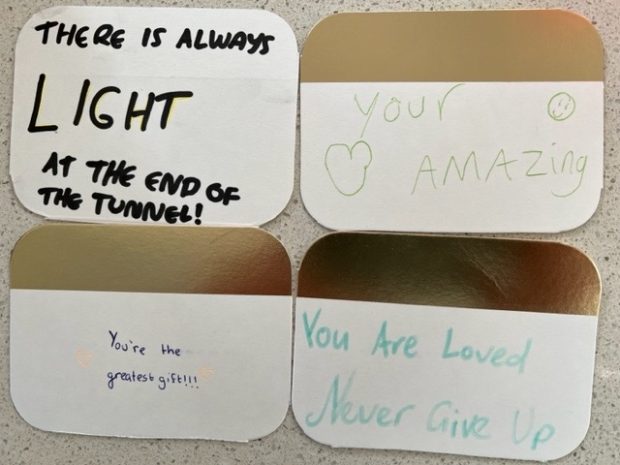 THERE IS ALWAYS
LIGHT
AT THE END OF
THE TUNNEL!
your
AMAZing
You're the
greatest gift!!!
You Are Loved
Never Give Up